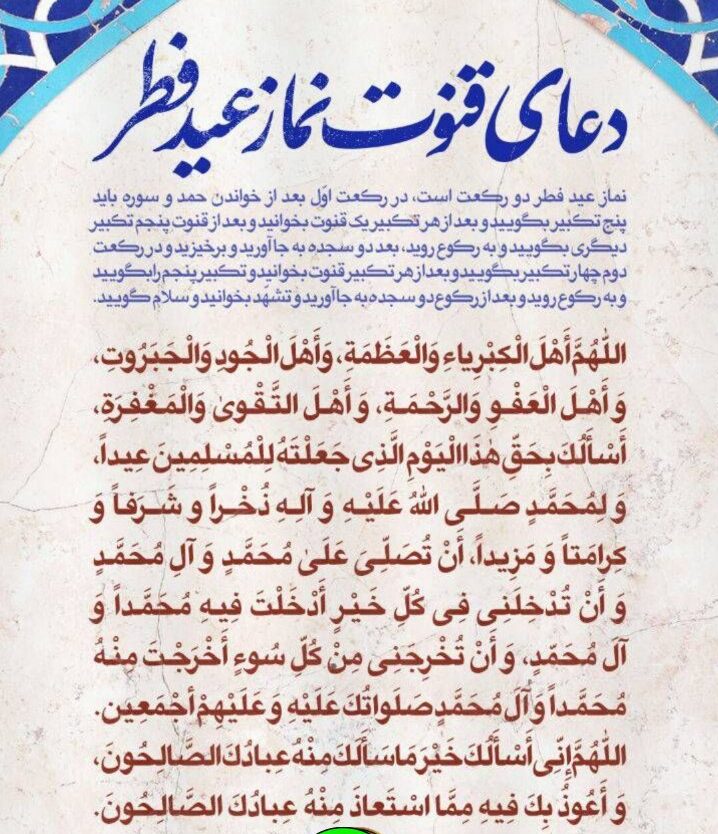 دعای قنوت نماز عید فطر
نماز عید فطر دو رکعت است، در رکعت اوّل بعد از خواندن حمد و سوره باید
پنج تکبیر بگویید و بعد از هر تکبیر یک قنوت بخوانید و بعد از قنوت پنجم تکبیر
دیگری بگویید و به رکوع روید، بعد دو سجده به جا آورید و برخیزید و در رکعت
دوم چهار تکبیر بگویید و بعد از هر تکبیر قنوت بخوانید و تکبیر پنجم را بگویید
و به رکوع روید و بعد از رکوع دو سجده به جا آورید و تشهّد بخوانید و سلام گویید.
اللّٰهُمَّ أَهْلَ الْكِبْرِياءِ وَالْعَظَمَةِ، وَأَهْلَ الْجُودِ وَالْجَبَرُوتِ،
وَ أَهْلَ الْعَفْوِ وَالرَّحْمَةِ، وَ أَهْلَ التَّقْوىٰ وَالْمَغْفِرَةِ،
أَسْأَلُكَ بِحَقِّ هٰذَا الْيَوْمِ الَّذِی جَعَلْتَهُ لِلْمُسْلِمِينَ عِيداً،
وَ لِمُحَمَّدٍ صَلَّى اللهُ عَلَيْهِ وَ آلِهِ ذُخْراً و شَرَفاً وَ
كِرامَتاً وَ مَزِيداً، أَنْ تُصَلِّىَ عَلَىٰ مُحَمَّدٍ وَ آلِ مُحَمَّدٍ
وَ أَنْ تُدْخِلَنِی فِی كُلِّ خَيْرٍ أَدْخَلْتَ فِيهِ مُحَمَّداً وَ
آلَ مُحَمّدٍ، وَ أَنْ تُخْرِجَنِی مِنْ كُلِّ سُوءٍ أَخْرَجْتَ مِنْهُ
مُحَمَّداً وَ آلَ مُحَمَّدٍ صَلَواتُكَ عَلَيْهِ وَ عَلَيْهِمْ أجْمَعِين.
اللّٰهُمَّ إِنِّی أَسْأَلُكَ خَيْرَ مَا سَأَلَكَ مِنْهُ عِبادُكَ الصَّالِحُونَ،
وَ أَعُوذُ بِكَ فِيهِ مِمَّا اسْتَعاذَ مِنْهُ عِبادُكَ الصَّالِحُونَ.